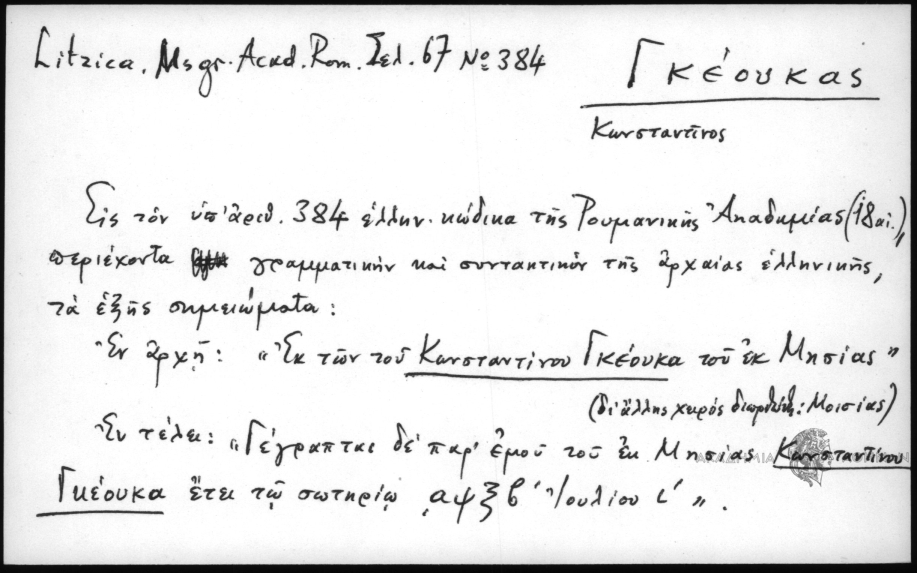 Litzica. Msgr. Acad. Rom. Σελ. 67 No 384
Γκέουκας
Κωνσταντῖνος
Εἰς τὸν ὑπ' ἀριθ. 384 ἑλλην. κώδικα τῆς Ρουμανικῆς Ἀκαδημίας (18 αἰ.),
περιέχοντα γραμματικὴν καὶ συντακτικὸν τῆς ἀρχαίας ἑλληνικῆς,
τὰ ἑξῆς σημειώματα:
Ἐν ἀρχῇ: "Ἐκ τῶν τοῦ Κωνσταντίνου Γκέουκα τοῦ ἐκ Μησίας"
(δι' ἄλλης χειρὸς : Μοισίας)
Ἐν τέλει: "Γέγραπται δὲ παρ' ἐμοῦ τοῦ ἐκ Μησίας Κωνσταντίνου
Γκέουκα ἔτει τῷ σωτηρίῳ ͵αψξβ' Ἰουλίου ι'".